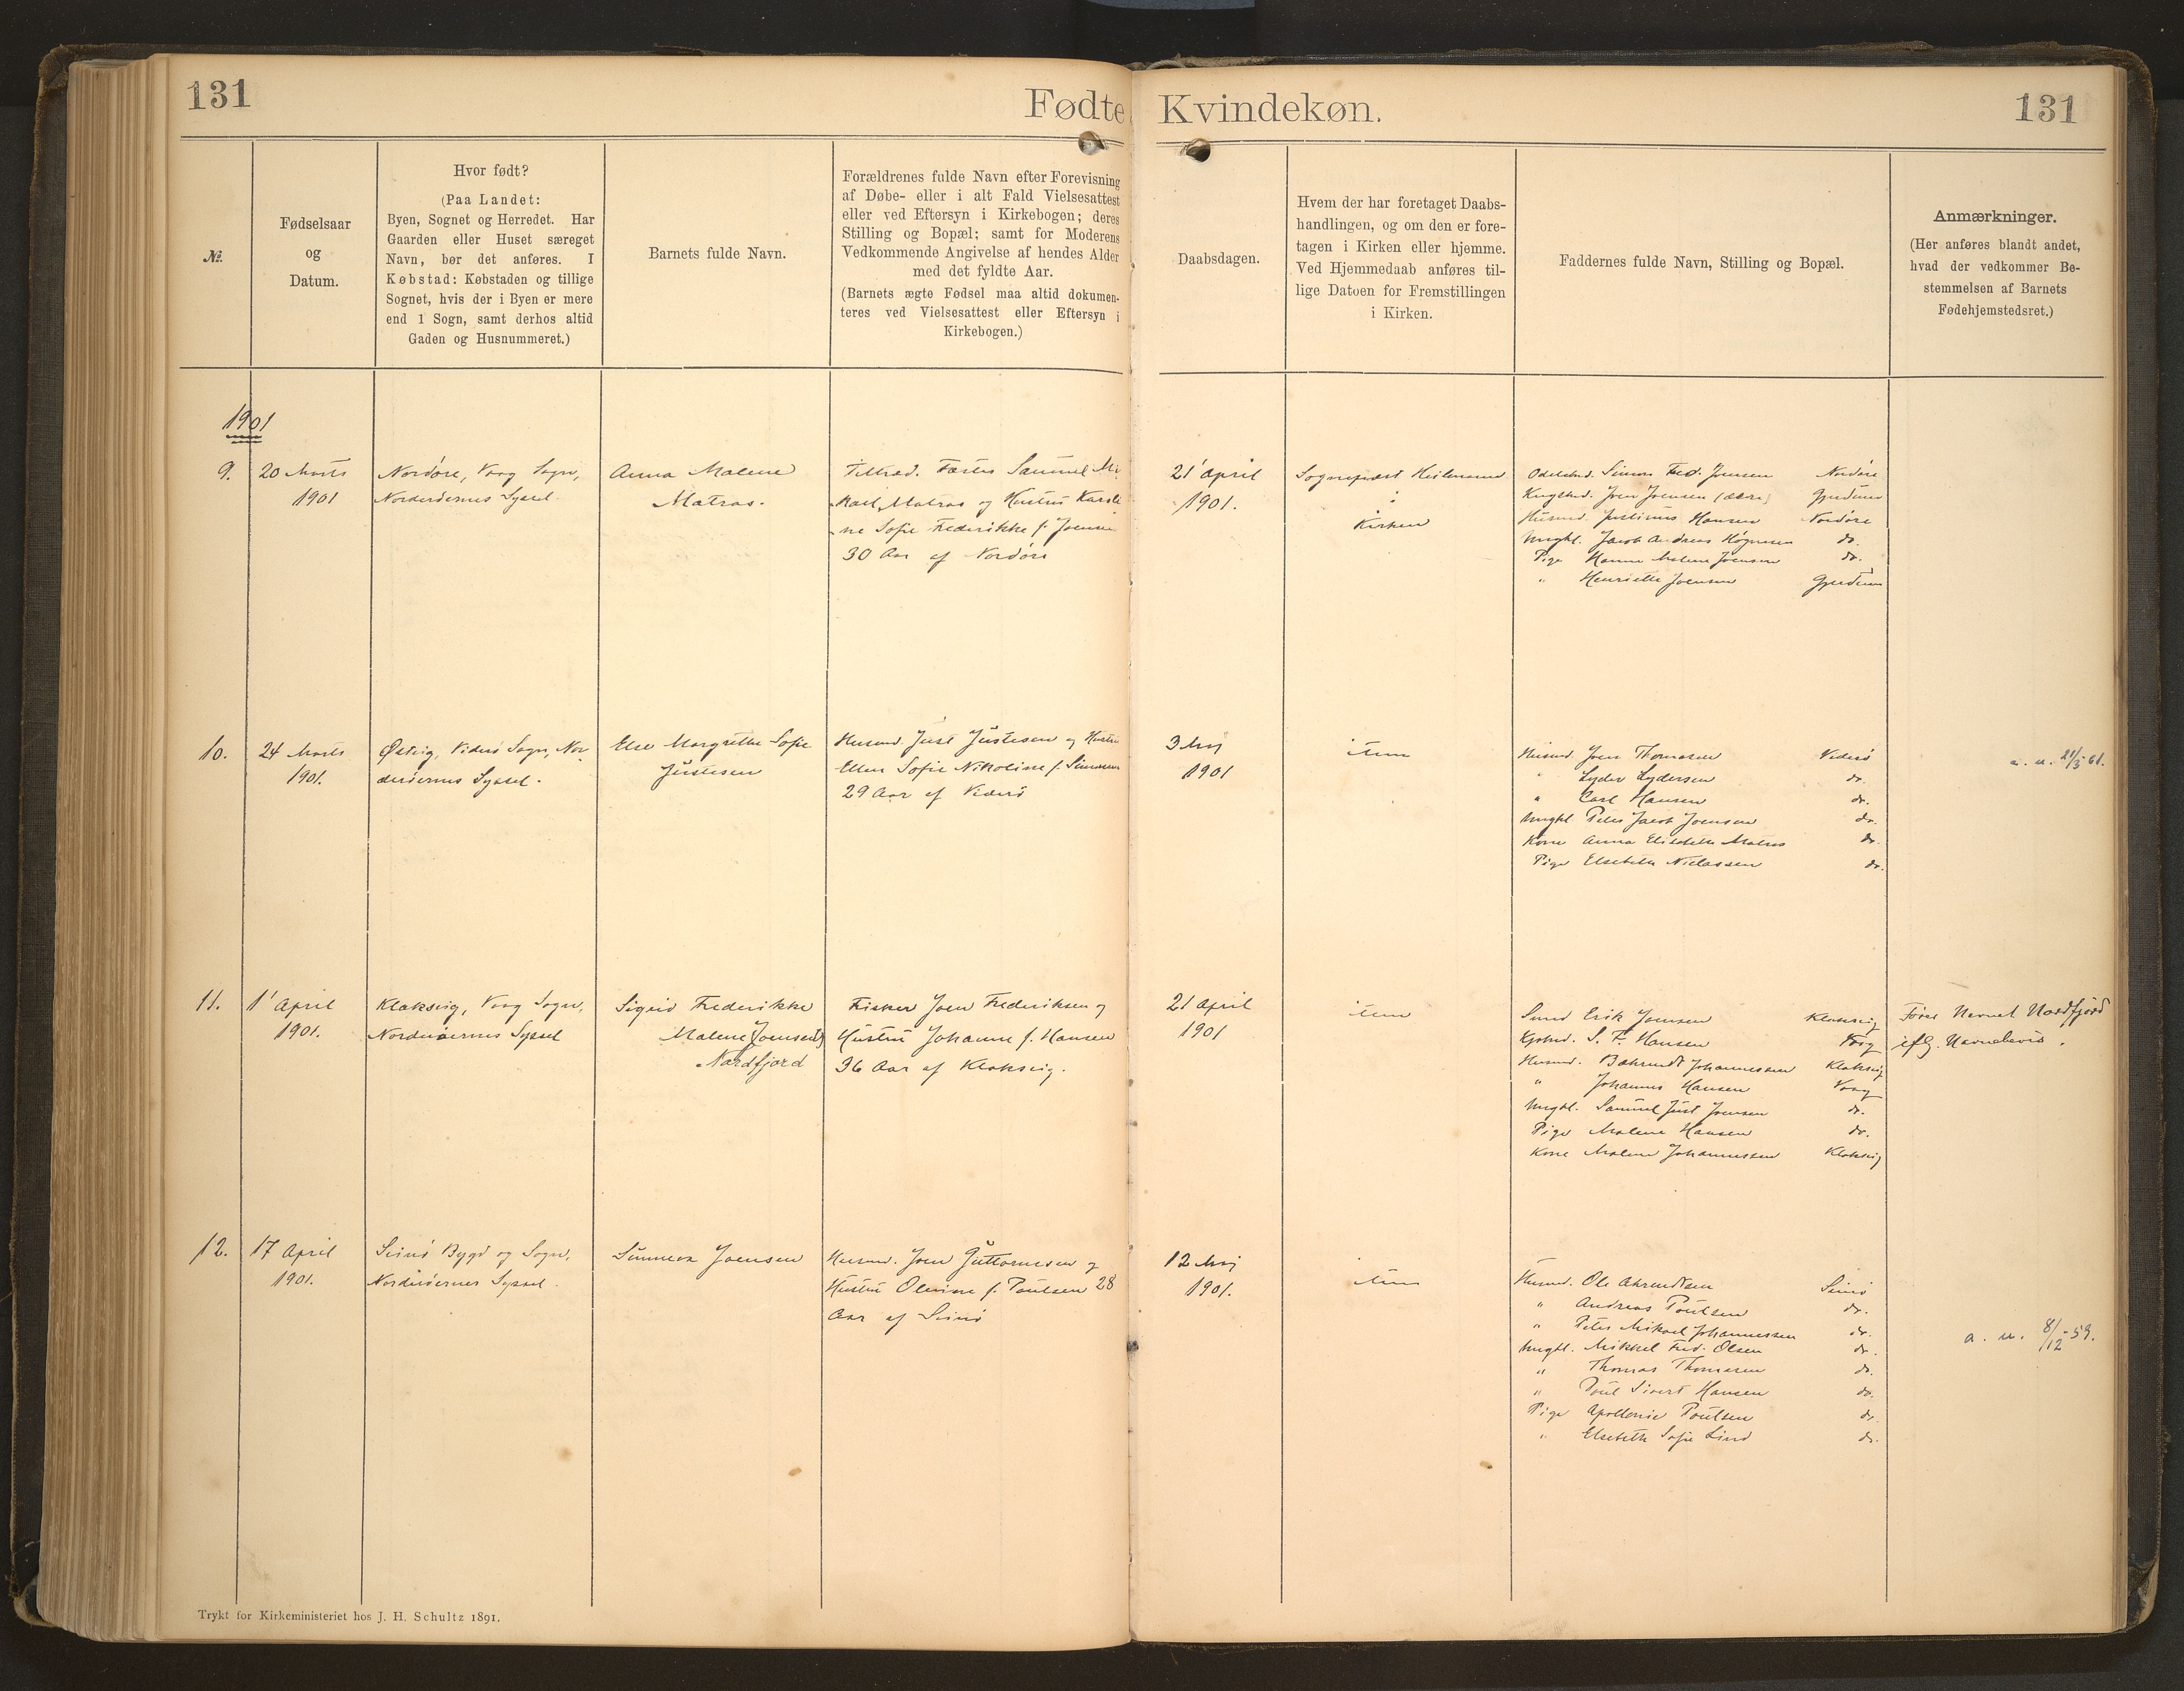 131
Fødte Kvindekøn.
131
№.
Fødselsaar
og
Datum.
Hvor født?
(Paa Landet:
Byen, Sognet og Herredet. Har
Gaarden eller Huset særeget
Navn, bør det anføres. I
Købstad: Købstaden og tillige
Sognet, hvis der i Byen er mere
end 1 Sogn, samt derhos altid
Gaden og Husnummeret.)
Barnets fulde Navn.
Forældrenes fulde Navn efter Forevisning
af Døbe- eller i alt Fald Vielsesattest
eller ved Eftersyn i Kirkebogen; deres
Stilling og Bopæl; samt for Moderens
Vedkommende Angivelse af hendes Alder
med det fyldte Aar.
(Barnets ægte Fødsel maa altid dokumen-
teres ved Vielsesattest eller Eftersyn i
Kirkebogen.)
Daabsdagen.
Hvem der har foretaget Daabs-
handlingen, og om den er fore-
tagen i Kirken eller hjemme.
Ved Hjemmedaab anføres til-
lige Datoen for Fremstillingen
i Kirken.
Faddernes fulde Navn, Stilling og Bopæl.
Anmærkninger.
(Her anføres blandt andet,
hvad der vedkommer Be-
stemmelsen af Barnets
Fødehjemstedsret.)
1901
9.
20 Marts
1901
Nordöre, Vaag Sogn,
Norderöernes Syssel.
Anna Malene
Matras.
Tiltræd. Fæster Samuel Mi-
kael Matras og Hustru Karoli
ne Sofie Frederikke f. Joensen
30 Aar af Nordöre
21 April
1901.
Sognepræst Heilmann
i
Kirken
Odelsbd. Simon Fred. Joensen Nordöre
Kngsbd. Joen Joensen (ældre)
Husmd. Justinus Hansen Nordöre
Ungkl. Jacob Andreas Högnesen do.
Pige Hanne Malene Joensen do.
" Henriette Joensen
10.
24 Marts
1901.
Østvig, Viderö Sogn, Nor-
deröernes Syssel.
Else Margrethe Sofie
Justesen
Husmd. Just Justesen og Hustru
Ellen Sofie Nikoline f. Simonsen
29 Aar af Viderö
3 Maj
1901
item
Husmd. Joen Thomasen Viderö
" Lyder Lydersen do.
" Carl Hansen do.
Ungkl Peter Jacob Joensen do.
Kone Anna Elisabeth Matras do.
Pige Elsebeth Niclassen do.
a. u. 21/3-61.
11.
1 April
1901.
Klaksvig, Vaag Sogn,
Norderöernes Syssel
Sigrid Frederikke
Malene (Joensen)
Nordfjord
Fisker Joen Frederiksen og
Hustru Johanne f. Hansen
36 Aar af Klaksvig.
21 April
1901
item
Smed Erik Joensen Klaksvig
Kjøbmd. S. F. Hansen Vaag
Husmd. Johannessen Klaksvig
" Johannes Hansen Vaag
Ungkl. Samuel Just Joensen do.
Pige Malene Hansen do.
Kone Malene Johannessen Klaksvig
Fører Navnet Nordfjord
iflg. Navnebevis.
12.
17 April
1901.
Svinö Bygd og Sogn,
Norderöernes Syssel.
Sunneva Joensen
Husmd. Joen Guttormsen og
Hustru Olevine f. Poulsen 28
Aar af Svinö
12 Maj
1901.
item
Husmd. Ole Ahrendtsen Svinö
" Andreas Poulsen do.
" Peter Mikael Johannessen do.
Ungkl. Mikkel Fred. Olsen do.
" Thomas Thomasen do.
" Poul Sivert Hansen do.
Pige Apollonie Poulsen do.
" Elsebeth Sofie Lind do.
a. u. 8/12-59.
Trykt for Kirkeministeriet hos J. H. Schultz 1891.